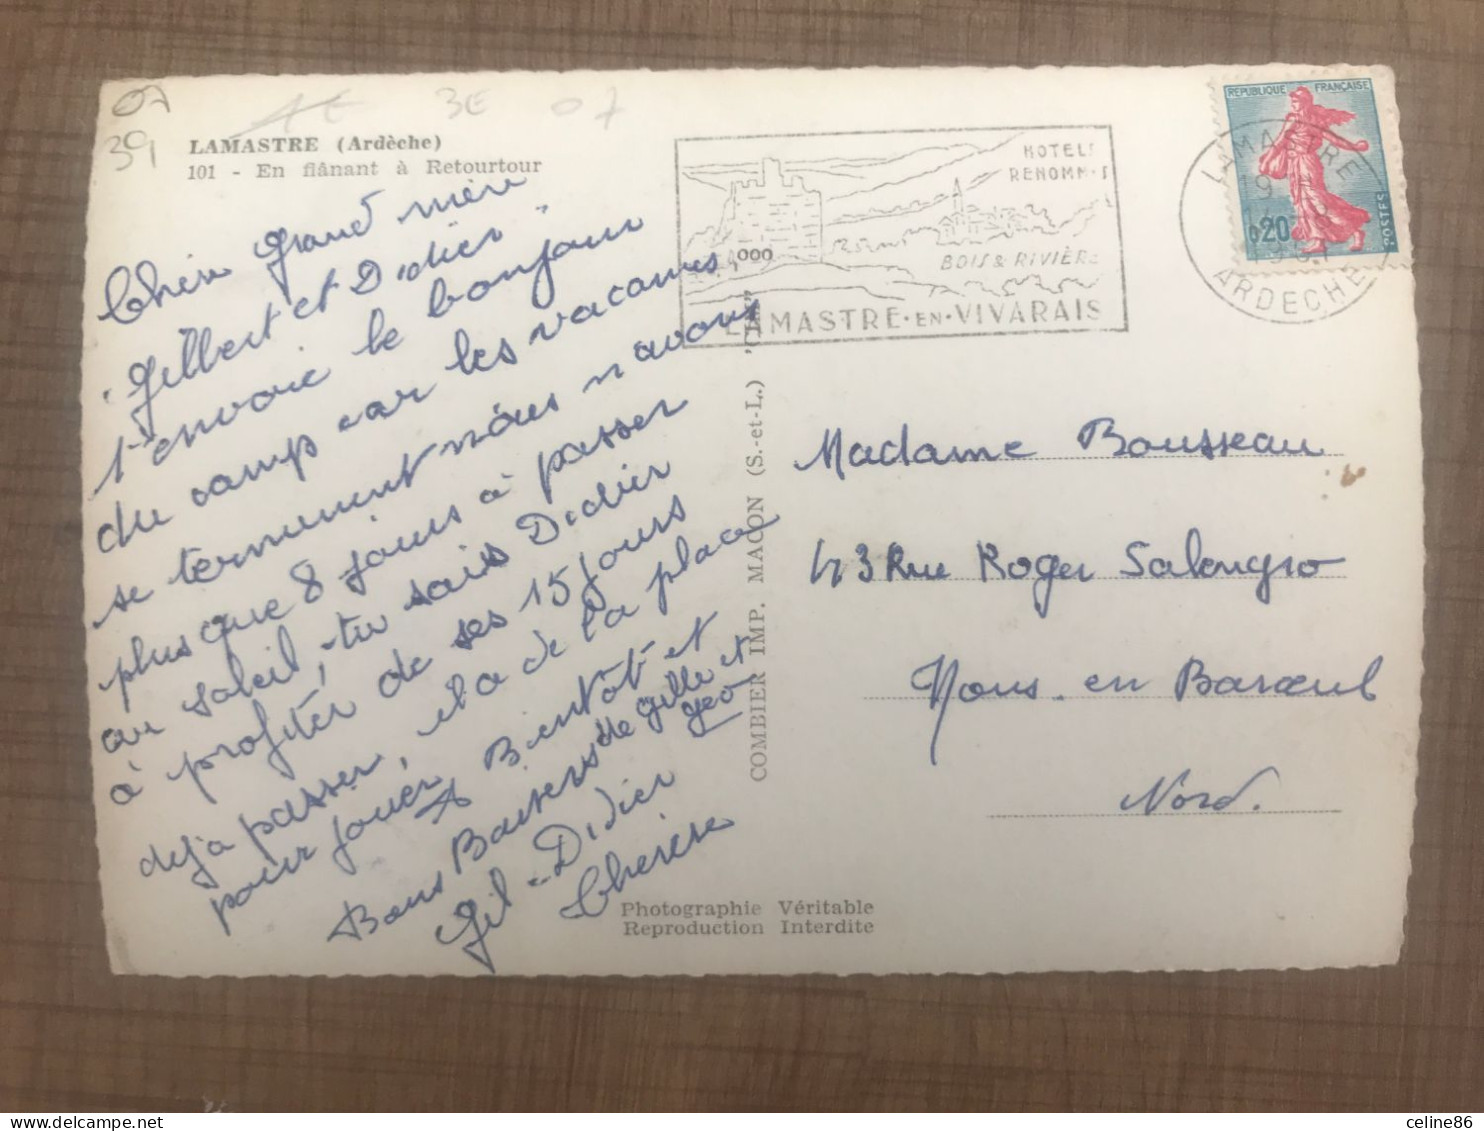 07
39
1E 3E 07
LAMASTRE (Ardèche)
101 - En flânant à Retourtour
Chère grand mère
Gilbert et Didier
t'envoie le bonjour
du camp car les vacances
se terminent nous n'avons
plus que 8 jours à passer
au soleil, tu sais Didier
à profiter de ses 15 jours
deja passer, il a de la place
pour jouer A Bientôt et
Bons Baisers de gille et
geo
Gil - Didier
Therèse
HOTELS
RENOMM
1.000
BOIS & RIVIÈRE
LAMASTRE·EN·VIVARAIS
REPUBLIQUE FRANÇAISE
0,20
POSTES
LAMASTRE
9 H
ARDECHE
COMBIER IMP. MACON (S.-et-L.) "CIM"
Madame Bousseau
43 Rue Roger Salengro
Mons en Baroeul
Nord.
Photographie Véritable
Reproduction Interdite
celine86